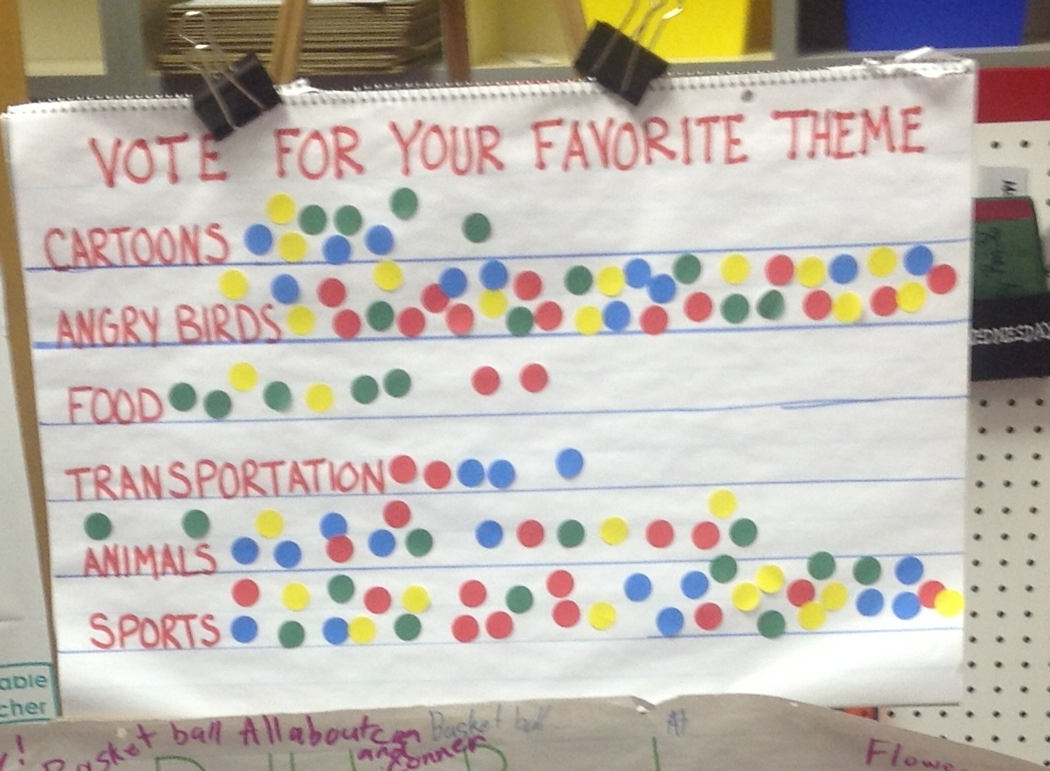 VOTE FOR YOUR FAVORITE THEME
CARTOONS
ANGRY BIRDS
FOOD
TRANSPORTATION
ANIMALS
SPORTS
able
cher
Basket ball All about
and
Basket ball